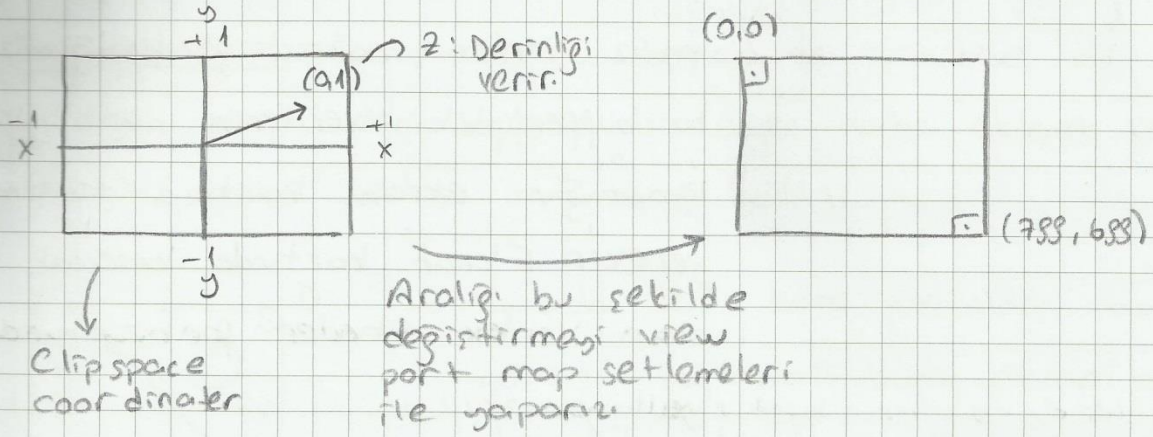 y
+1
(0,1)
z: Derinliği
verir.
-1
x
+1
x
-1
y
Clipspace
coordinater
(0,0)
(799, 699)
Aralığı bu şekilde
değiştirmeyi view
port map setlemeleri
ile yaparız.